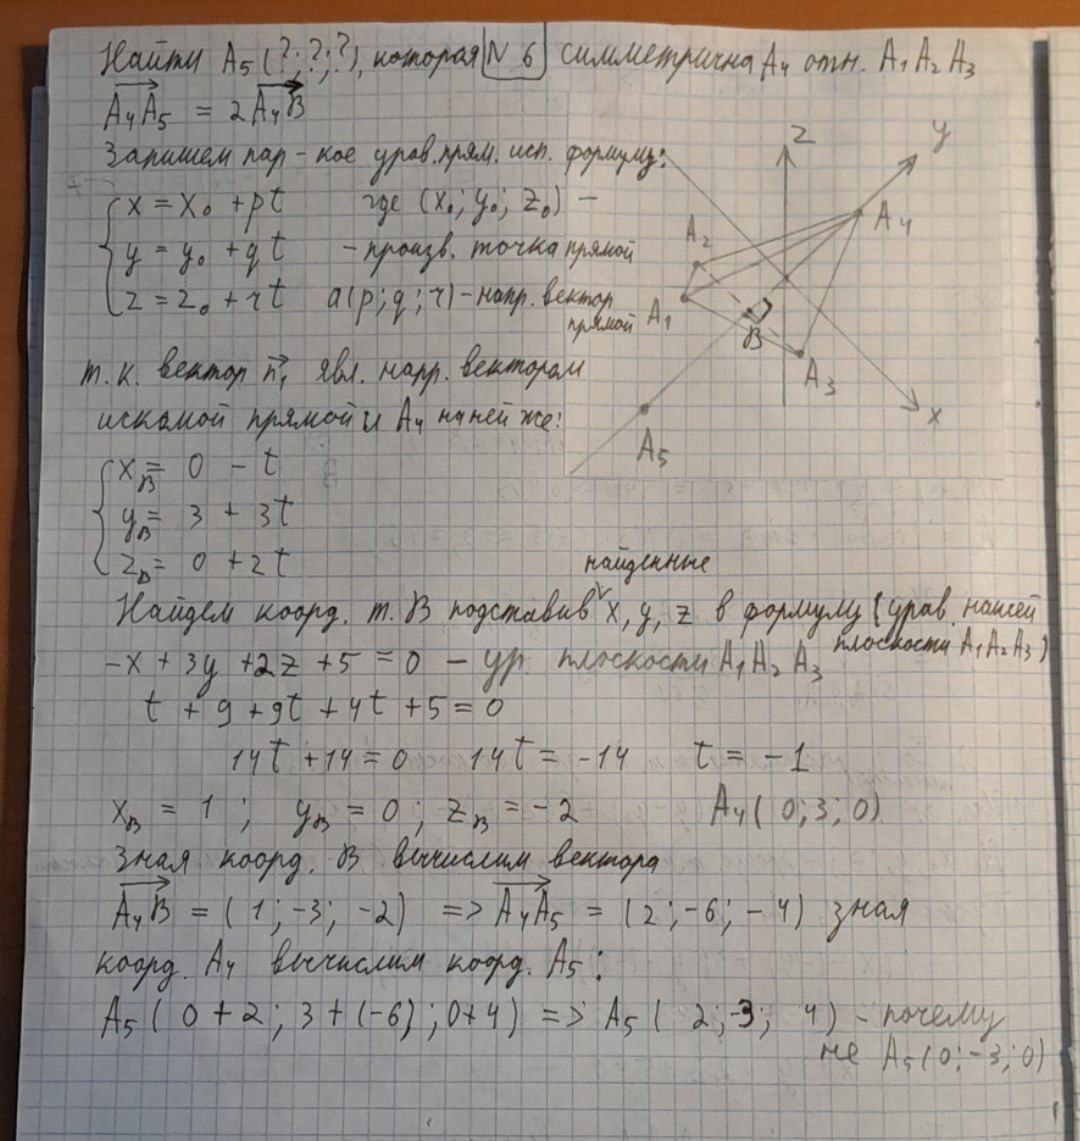 Найти A₅(?;?;?), которая N 6 симметрична A₄ отн. A₁A₂A₃
A₄A₅ = 2A₄B
Запишем пар-кое урав. прям. исп. формулу:
x = x₀ + pt где (x₀; y₀; z₀) –
y = y₀ + qt – произв. точка прямой
z = z₀ + rt a(p; q; r) – напр. вектор
прямой
z
y
A₄
A₂
A₁
B
A₃
x
A₅
т.к. вектор n₁ явл. напр. вектором
искомой прямой и A₄ на ней же:
x_B = 0 - t
y_B = 3 + 3t
z_B = 0 + 2t
найденные
Найдем коорд. т. B подставив x, y, z в формулу (урав. нашей
плоскости A₁A₂A₃)
-x + 3y + 2z + 5 = 0 – ур. плоскости A₁A₂A₃
t + 9 + 9t + 4t + 5 = 0
14t + 14 = 0 14t = -14 t = -1
x_B = 1 ; y_B = 0 ; z_B = -2 A₄(0; 3; 0)
Зная коорд. B вычислим вектора
A₄B = (1; -3; -2) => A₄A₅ = (2; -6; -4) зная
коорд. A₄ вычислим коорд. A₅:
A₅(0+2; 3+(-6); 0+4) => A₅(2; -3; 4) - почему
не A₅(0; -3; 0)